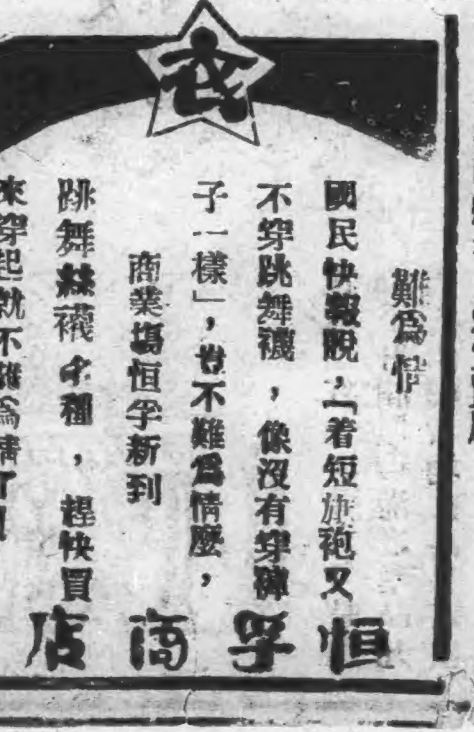 難為情
國民快報說,「着短旗袍又
不穿跳舞襪,像沒有穿褲
子一樣」,豈不難為情麼,
商業場恒孚新到
跳舞絲襪 種,趕快買
來穿起就不難為情了!
恒孚商店